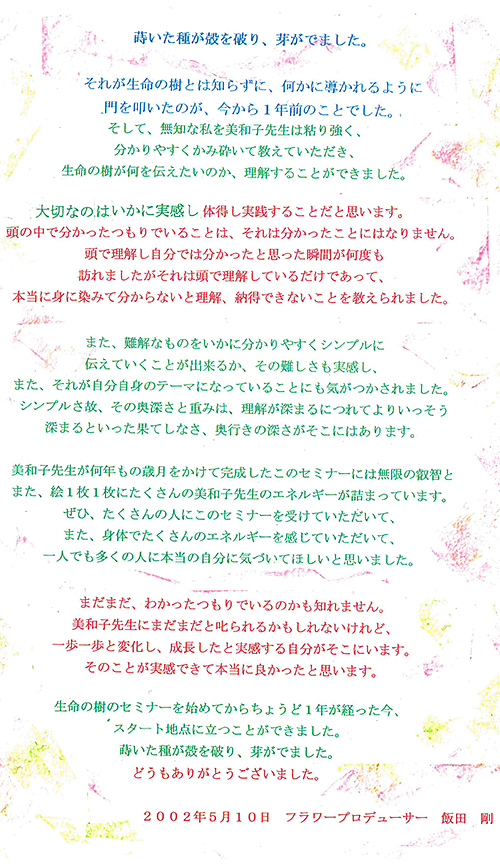 蒔いた種が殻を破り、芽がでました。
それが生命の樹とは知らずに、何かに導かれるように
門を叩いたのが、今から１年前のことでした。
そして、無知な私を美和子先生は粘り強く、
分かりやすくかみ砕いて教えていただき、
生命の樹が何を伝えたいのか、理解することができました。
大切なのはいかに実感し体得し実践することだと思います。
頭の中で分かったつもりでいることは、それは分かったことにはなりません。
頭で理解し自分では分かったと思った瞬間が何度も
訪れましたがそれは頭で理解しているだけであって、
本当に身に染みて分からないと理解、納得できないことを教えられました。
また、難解なものをいかに分かりやすくシンプルに
伝えていくことが出来るか、その難しさも実感し、
また、それが自分自身のテーマになっていることにも気がつかされました。
シンプルさ故、その奥深さと重みは、理解が深まるにつれてよりいっそう
深まるといった果てしなさ、奥行きの深さがそこにはあります。
美和子先生が何年もの歳月をかけて完成したこのセミナーには無限の叡智と
また、絵１枚１枚にたくさんの美和子先生のエネルギーが詰まっています。
ぜひ、たくさんの人にこのセミナーを受けていただいて、
また、身体でたくさんのエネルギーを感じていただいて、
一人でも多くの人に本当の自分に気づいてほしいと思いました。
まだまだ、わかったつもりでいるのかも知れません。
美和子先生にまだまだと叱られるかもしれないけれど、
一歩一歩と変化し、成長したと実感する自分がそこにいます。
そのことが実感できて本当に良かったと思います。
生命の樹のセミナーを始めてからちょうど１年が経った今、
スタート地点に立つことができました。
蒔いた種が殻を破り、芽がでました。
どうもありがとうございました。
２００２年５月１０日　フラワープロデューサー　飯田　剛